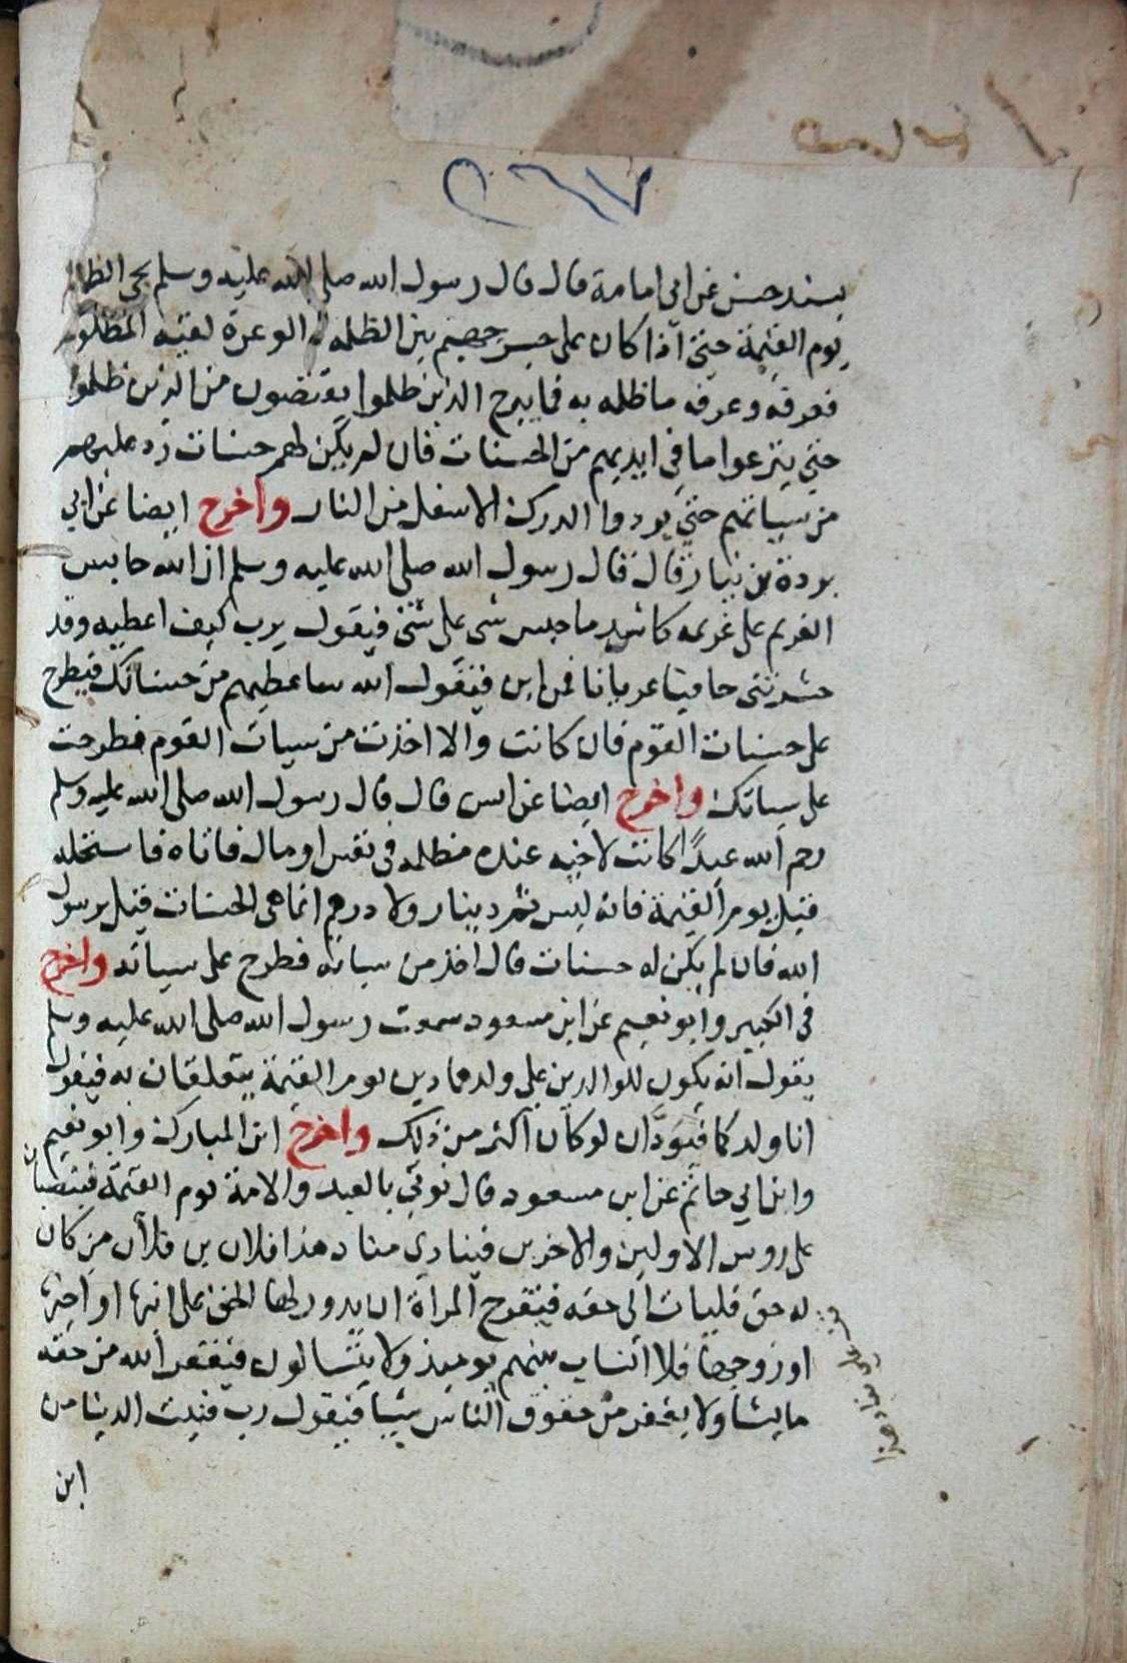 ٢٦١٧
بسند حسن عن ابي امامة قال قال رسول الله صلى الله عليه وسلم يجي الظالم
يوم القيمة حتى اذا كان على جسر جهنم بين الظلمة والوعرة لقيه المظلوم
فعرفه وعرف ما ظلمه به فما يبرح الذين ظلموا يقتصون من الذين ظلموا
حتى ينزعوا ما في ايديهم من الحسنات فان لم يكن لهم حسنات رد عليهم
من سيياتهم حتى يوردوا الدرك الاسفل من النار واخرج ايضا عن ابي
بردة بن نيار قال قال رسول الله صلى الله عليه وسلم ان الله حابس
الغريم على غريمه كاشد ما حبس شى على شئ فيقول يرب كيف اعطيه وقد
حشرتنى حافيا عريانا فمن اين فيقول الله ساعطيهم من حسناتك فيطرح
على حسنات القوم فان كانت والا اخذت من سيات القوم فطرحت
على سياتك واخرج ايضا عن انس قال قال رسول الله صلى الله عليه وسلم
رحم الله عبدًا كانت لاخيه عنده مظلمه في نفس او مال فاتاه فاستحله
قبل يوم القيمة فانه ليس ثم دينار ولا درهم انما هى الحسنات قيل يرسول
الله فان لم يكن له حسنات قال اخذ من سياته فطرح على سياته واخرج
في الكبير وابو نعيم عن ابن مسعود سمعت رسول الله صلى الله عليه وسلم
يقول انه يكون للوالدين على ولدهما دين يوم القيمة يتعلقان به فيقول
انا ولدكما فيودّان لو كان اكثر من ذلك واخرج ابن المبارك وابو نعيم
وابن ابي حاتم عن ابن مسعود قال يوتي بالعبد والامة يوم القيمة فينصبان
على روس الاولين والاخرين فينادي مناد هذا فلان بن فلان من كان
له حق فليات الى حقه فتفرح المراة ان يدور لها الحق على ابنها او اخيها
او زوجها فلا انساب بينهم يوميذ ولا يتسالون فيغفر الله من حقه
ما يشا ولا يغفر من حقوق الناس شيا فيقول رب فنيت الدنيا من
اين